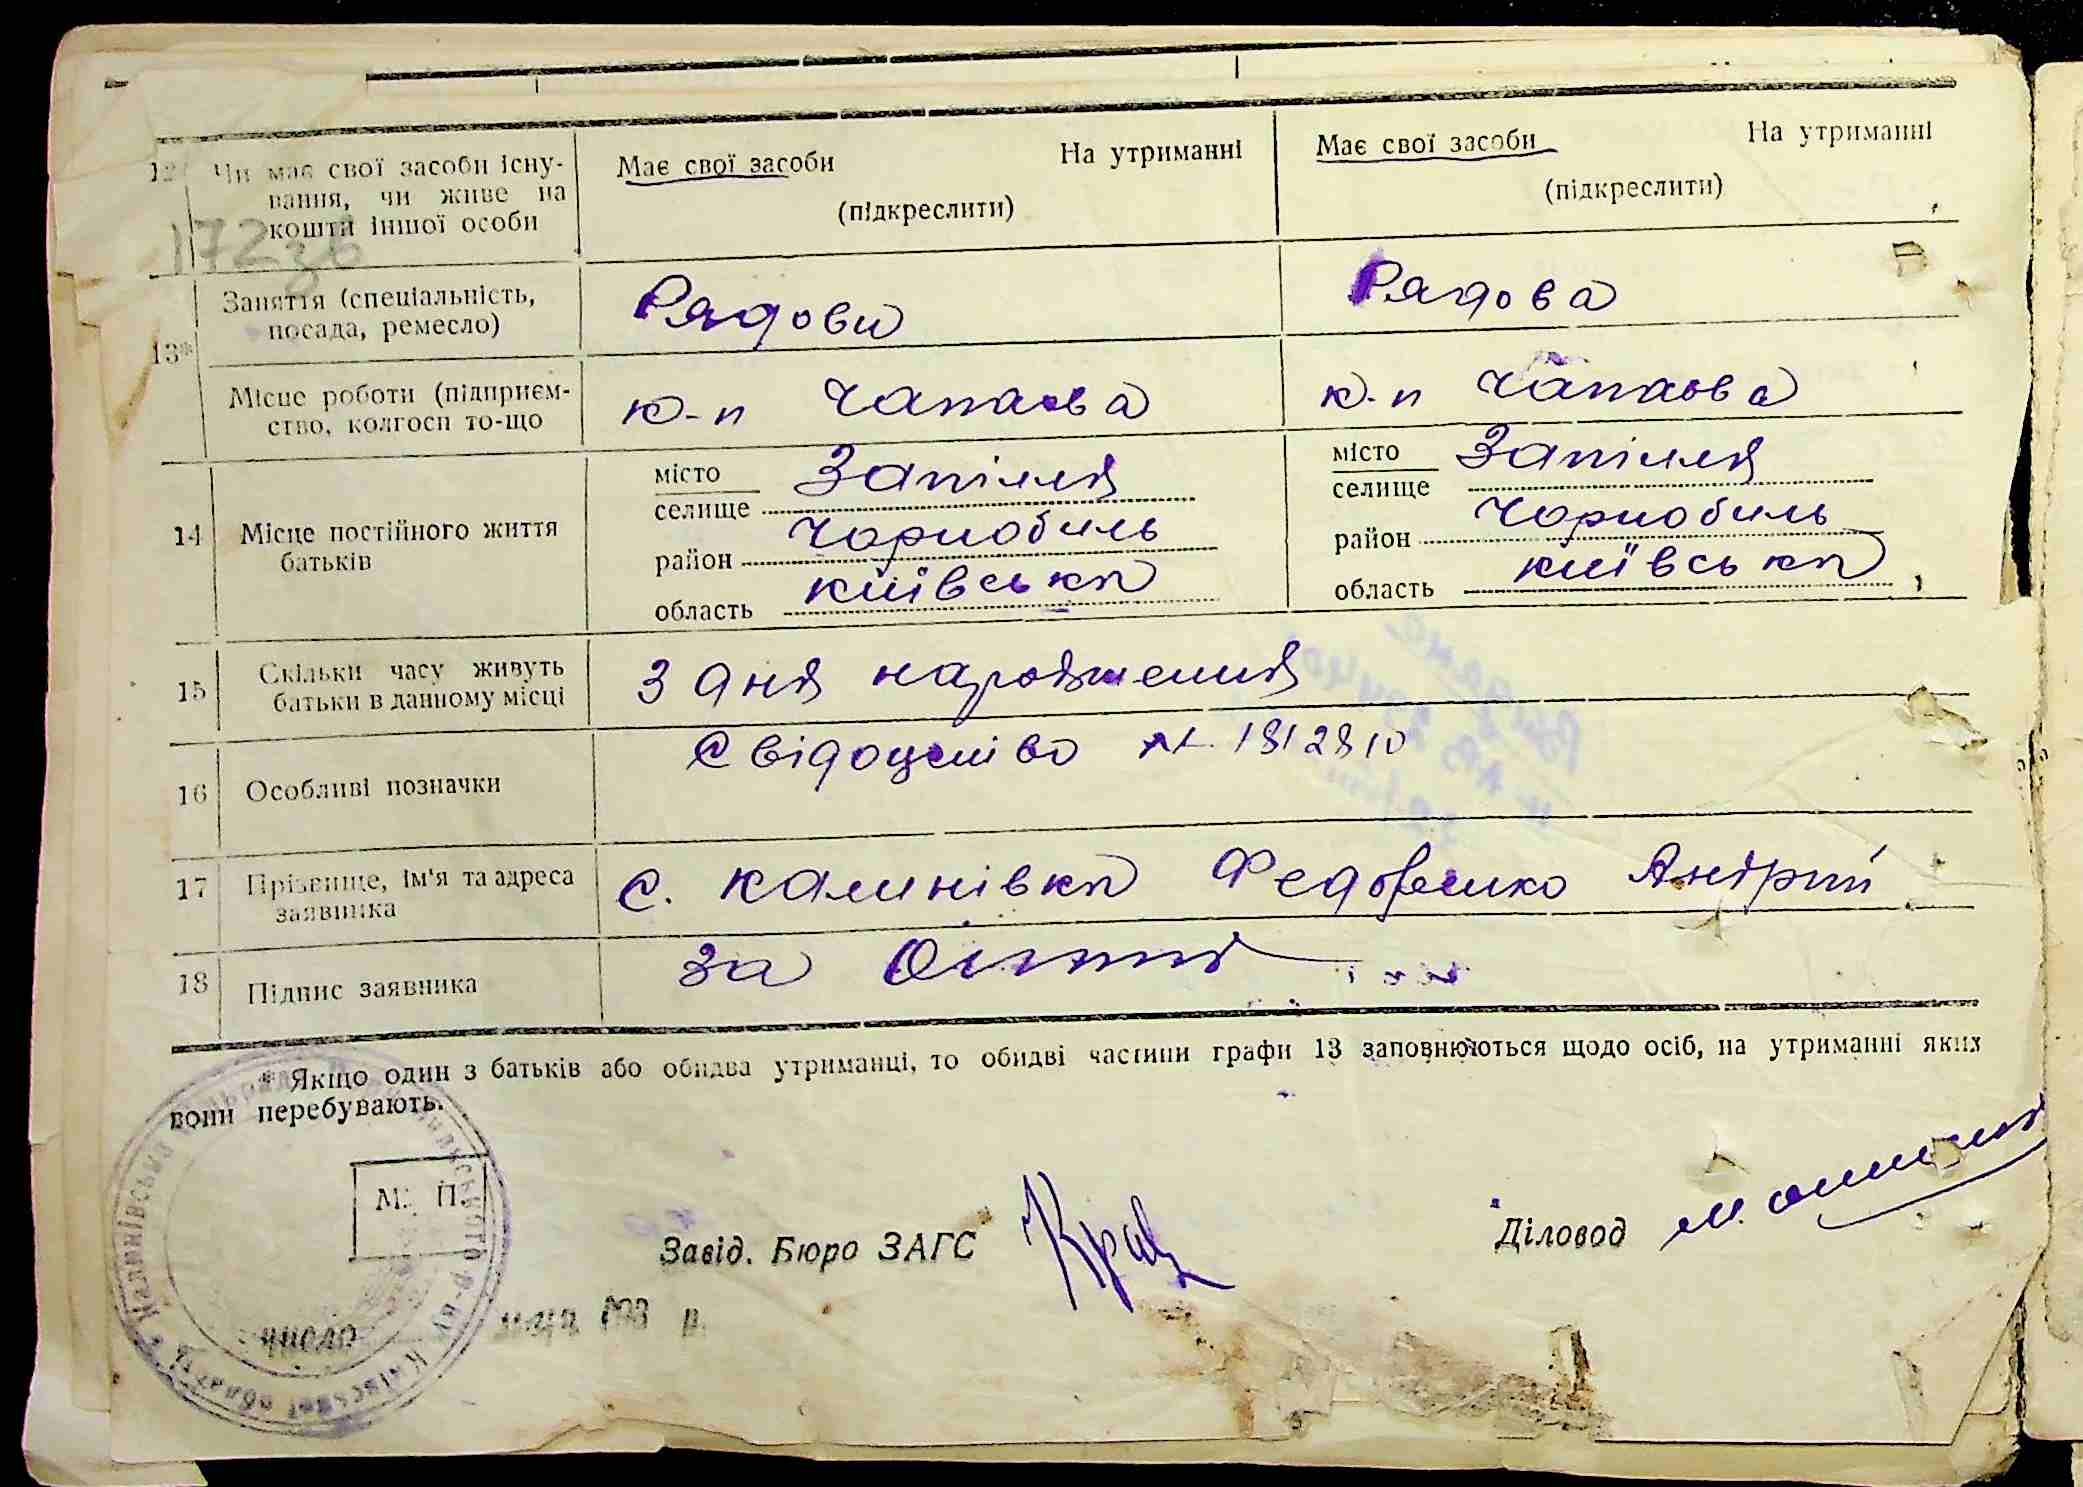 12 Чи має свої засоби існу-
вання, чи живе на
кошти іншої особи
Має свої засоби На утриманні
(підкреслити)
Має свої засоби На утриманні
(підкреслити)
172зв
13*
Заняття (спеціальність,
посада, ремесло)
Рядови
Рядова
Місце роботи (підприєм-
ство, колгосп то-що
к-п Чапаєва
к-п Чапаєва
14 Місце постійного життя
батьків
місто
селище Запілля
район Чорнобиль
область Київська
місто
селище Запілля
район Чорнобиль
область Київська
15 Скільки часу живуть
батьки в данному місці
З дня народження
16 Особливі позначки
Свідоцтво № 1812810
17 Прізвище, ім'я та адреса
заявника
с. Калинівка Федоренко Андрій
18 Підпис заявника
За
* Якщо один з батьків або обидва утриманці, то обидві частини графи 13 заповнюються щодо осіб, на утриманні яких
вони перебувають.
М. П.
Завід. Бюро ЗАГС
Діловод
число
р.
Калинівська р-ну Київської області